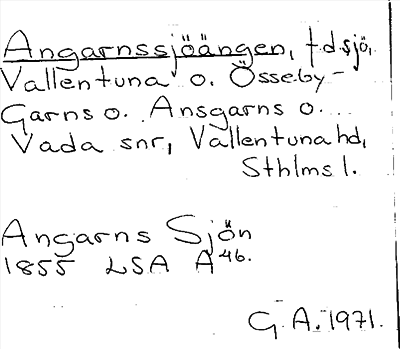 Angarnssjöängen, f.d. sjö,
Vallentuna o. Össeby-
Garns o. Ansgarns o.
Vada snr, Vallentuna hd,
Sthlms l.
Angarns Sjön
1855 LSA A 46.
G. A. 1971.